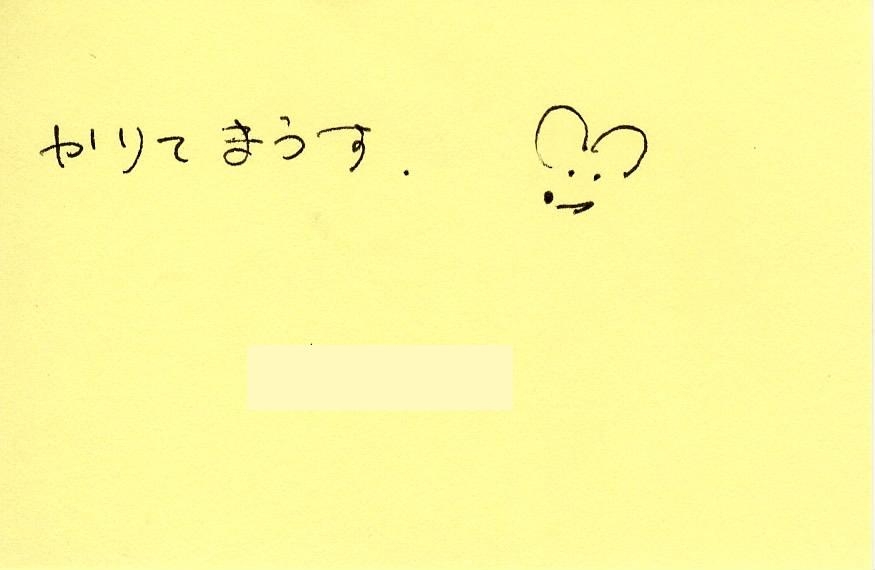 かりてまうす.